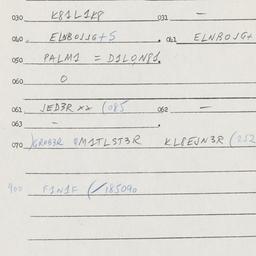 030 K81L1K8 031 –
040 ELNBOJJG+5 041 ELNBOJG+
050 PALM1 = D1LQN81.
060 0
061 JED3R x2 (085 062 –
063 –
070 M1TLST3R KL8EJN3R (252
900 F1N1F (185090